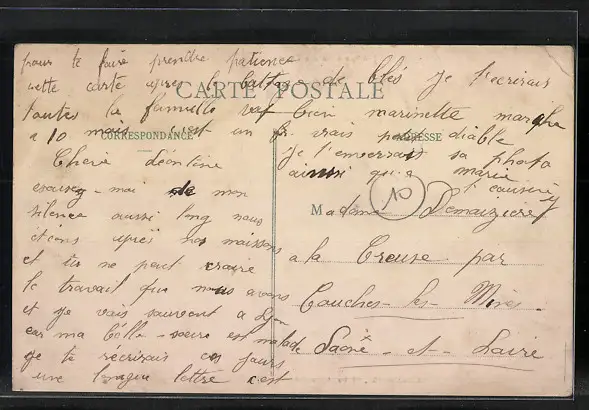 pour te faire prendre patience
cette carte après le battage de blés je t'ecrirais
CARTE POSTALE
toutes la famille vat bien marinette marche
a 10 mois c'est un vrais petit diable
CORRESPONDANCE
ADRESSE
je l'enverrais sa photo
ainssi qu'a marie
t'ecusserey
Chere Léontine
excusez-moi de mon
silence aussi long nous
etions après nos moissons
et tu ne peut croire
le travail que nous avons
et je vais souvent a Lyon
car ma bélle-soeure est malade
je te récrirais ces jours
une longue lettre c'est
10
Madame Demaizieres
a la Creuse par
Couches-les-Mines-
Saône-et-Loire